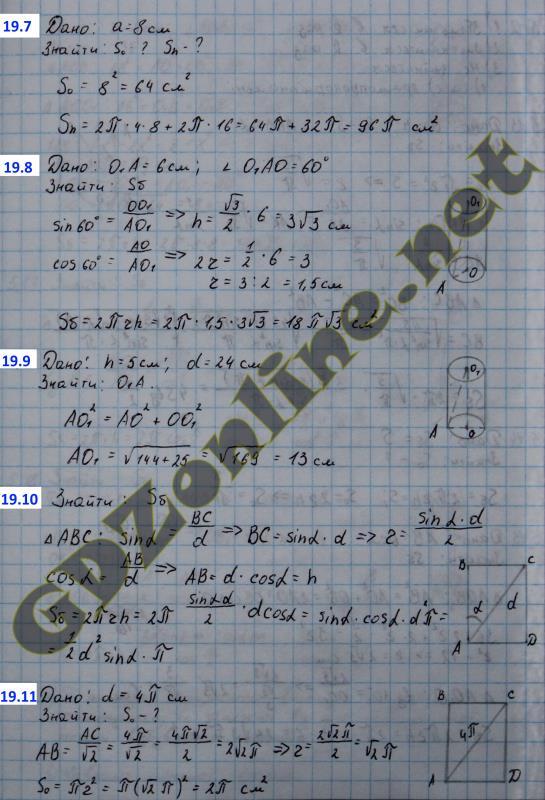 19.7 Дано: a = 8 см
Знайти: S₀ - ? Sп - ?
S₀ = 8² = 64 см²
Sп = 2π · 4 · 8 + 2π · 16 = 64π + 32π = 96π см²
19.8 Дано: O₁A = 6 см; ∠ O₁AO = 60°
Знайти: Sб
sin 60° = OO₁/AO₁ => h = √3/2 · 6 = 3√3 см
cos 60° = AO/AO₁ => 2r = 1/2 · 6 = 3
r = 3 : 2 = 1,5 см
Sб = 2πrh = 2π · 1,5 · 3√3 = 18π√3 см²
O₁
O
A
19.9 Дано: h = 5 см; d = 24 см
Знайти: O₁A
AO₁² = AO² + OO₁²
AO₁ = √144+25 = √169 = 13 см
O₁
A
O
19.10 Знайти: Sб
△ABC: sinα = BC/d => BC = sinα · d => r = sinα · d/2
cosα = AB/d => AB = d · cosα = h
Sб = 2πrh = 2π sinα d/2 · d cosα = sinα · cosα · d²π =
= 1/2 d² sinα · π
B C
α d
A D
19.11 Дано: d = 4π см
Знайти: S₀ - ?
AB = AC/√2 = 4π/√2 = 4π√2/2 = 2√2π => r = 2√2π/2 = √2π
S₀ = πr² = π(√2π)² = 2π см²
B C
4π
A D
GDZonline.net